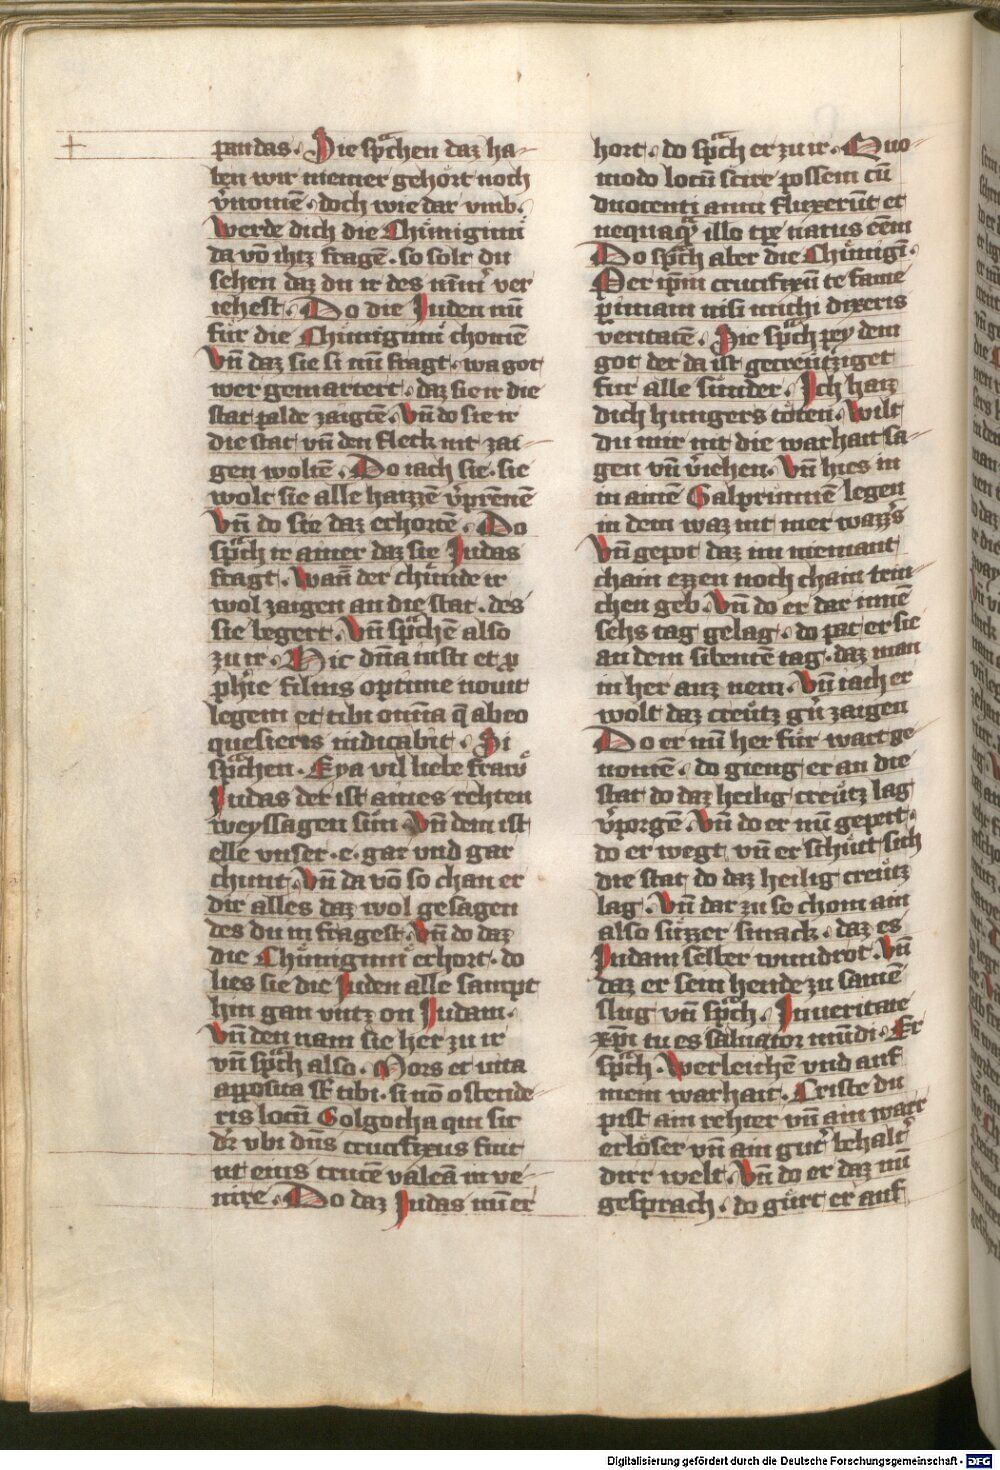 pandas. Die sp̃chen daz ha-
ben wir niemer gehört noch
v̓nomē. doch wie dar vmb.
Werde dich die Chüniginn
da vō ihtz fragē. so solt du
sehen daz du ir des nīm̄ ver
iehest. Do die Juden nu
für die Chüniginn chomē
Vn̄ daz sie si nu fragt. wa got
wer gemartert. daz sie ir die
stat palde zaigtē. Vn̄ do sie ir
die stat vn̄ den fleck nit zai-
gen woltē. Do iach sie. sie
wolt sie alle haizzē v̓prēnē
Vn̄ do sie daz erhortē. Do
sp̃ch ir ainer daz sie Judas
fragt. Wan̄ der chünde ir
wol zaigen an die stat. des
sie begert. Vn̄ sp̃chē also
zu ir. Hic dn̄a iusti et p̄
phē filius optime nouit
legem et tibi om̄ia q̄ ab eo
quesieris indicabit. Si
sp̃chen. Eya vil liebe fraw
Judas der ist aines rehten
weyssagen sun. Vn̄ dem ist
elle vnser. e. gar vnd gar
chunt. Vn̄ da vō so chan er
dir alles daz wol gesagen
des du in fragest. Vn̄ do daz
die Chüniginn erhort. do
lies sie die Juden alle sampt
hin gan vntz on Judam.
Vn̄ den nam sie her zu ir
vn̄ sp̃ch also. Mors et uita
apposita st̄ tibi. si nō ostende
ris locū Golgotha qui sic
dr̄ vbi dn̄s crucifixus fuit
ut eius crucē valeā in ve-
nire. Do daz Judas nu er
hort. do sp̃ch er zu ir. Quo-
modo locū scire possem cū
ducenti anni fluxerūt et
nequaq̄ illo tp̄e natus eēm
Do sp̃ch aber die Chünigī.
Per ip̄m crucifixū te fame
perimam nisi michi dixeris
veritatē. Die sp̃ch pey dem
got der da ist gecreütziget
für alle sünder. Ich haiz
dich hungers töten. Wilt
du mir nit die warhait sa-
gen vn̄ v̓iehen. Vn̄ hies in
in ainē Galprunnē legen
in dem waz nit mer wazz̓s
Vn̄ gepot daz im niemant
chain ezzen noch chain trin-
chen geb. Vn̄ do er dar inne
sehs tag gelag. do pat er sie
an dem sibentē tag. daz man
in her auz nem. Vn̄ iach er
wolt daz creütz gn̓ zaigen
Do er nu her für wart ge
nomē. do gieng er an die
stat do daz heilig creütz lag
v̓porgē. Vn̄ do er nu gepett.
do er wegt vn̄ er schütt sich
die stat do daz heilig creütz
lag. Vn̄ dar zu so chom ain
also süzzer smack. daz es
Judam selber wundrot. Vn̄
daz er sein hende zu samē
slug vn̄ sp̃ch. In ueritate
xp̄e tu es saluator mūdi. Er
sp̃ch. Werleichē vnd auf
mein warhait. Criste du
pist ain rehter vn̄ ain warr
erlöser vn̄ ain gut̓ behalt̓
dirr welt. Vn̄ do er daz nu
gesprach. do gürt er auf
Digitalisierung gefördert durch die Deutsche Forschungsgemeinschaft - DFG